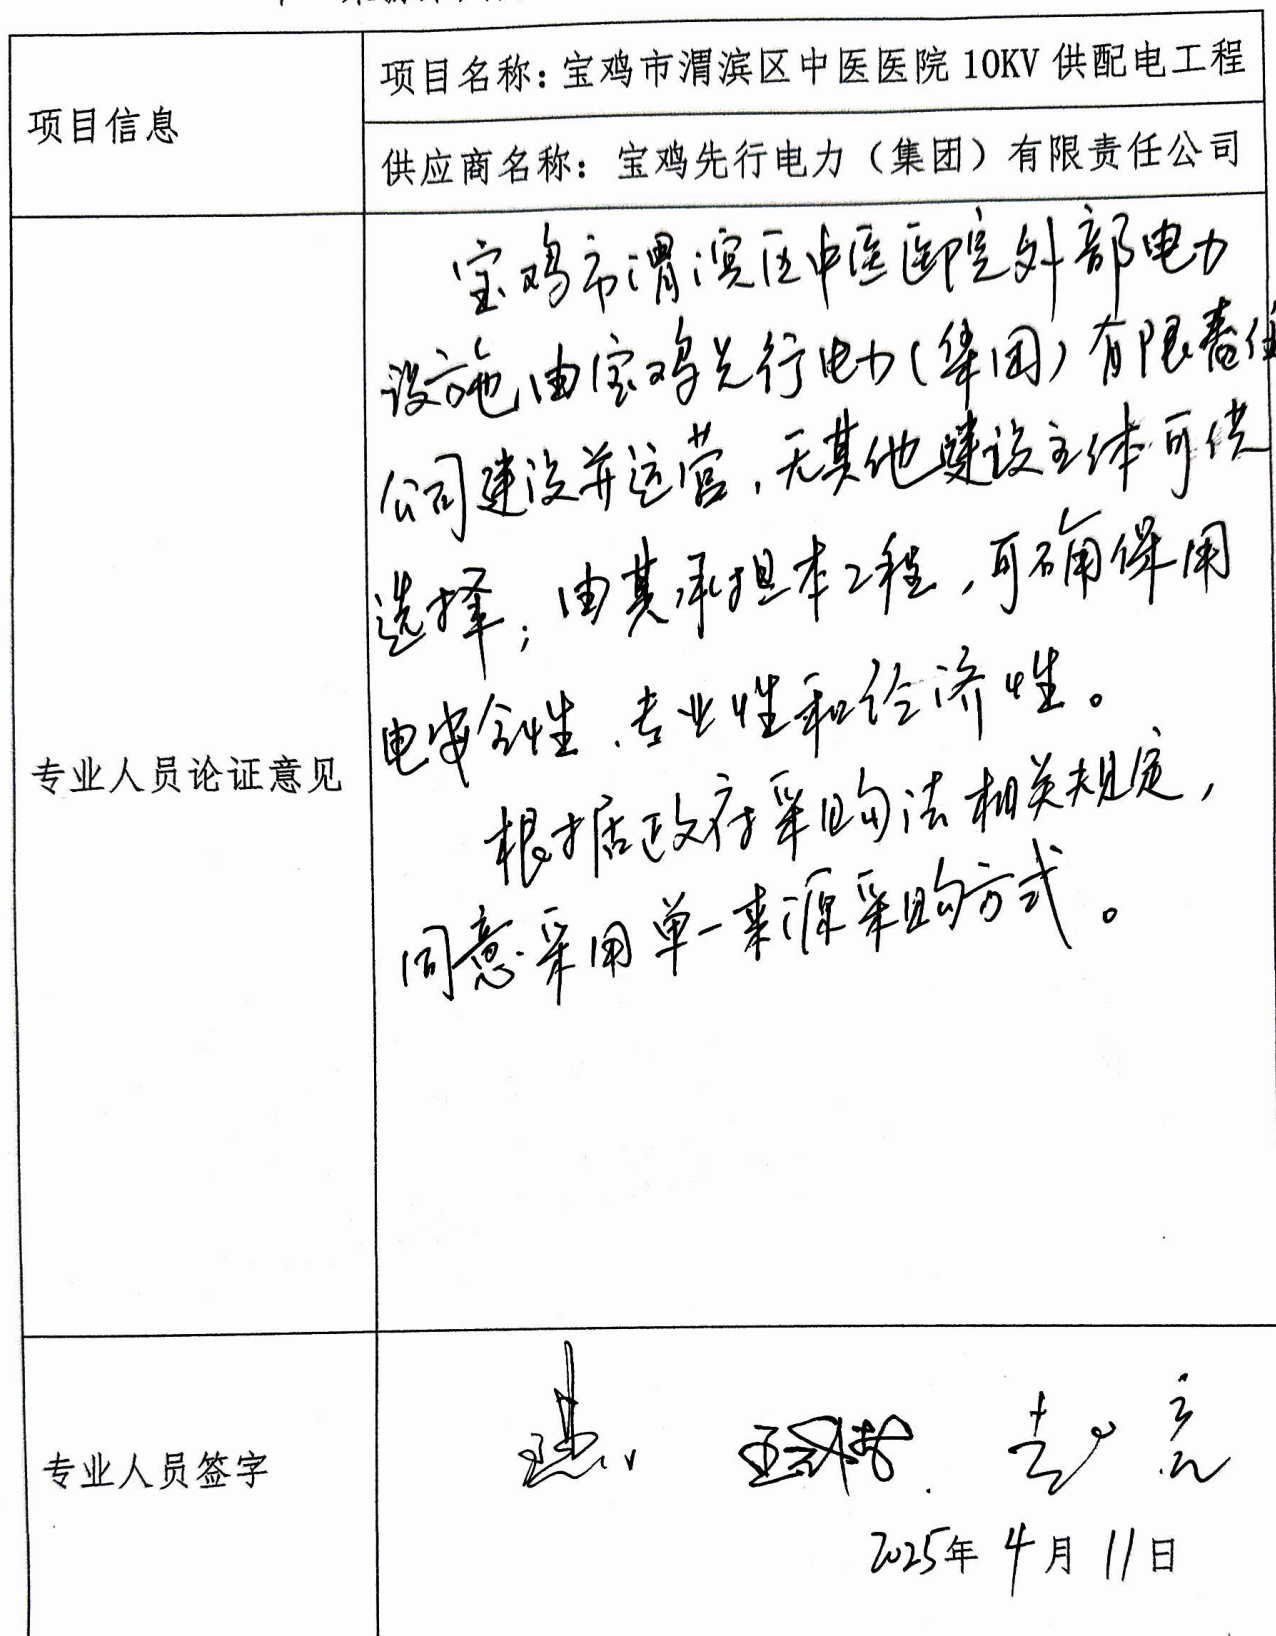 项目信息
项目名称：宝鸡市渭滨区中医医院 10KV 供配电工程
供应商名称：宝鸡先行电力（集团）有限责任公司
专业人员论证意见
宝鸡市渭滨区中医医院外部电力
设施由宝鸡先行电力(集团)有限责任
公司建设并运营，无其他建设主体可供
选择；由其承担本工程，可确保用
电安全性、专业性和经济性。
根据政府采购法相关规定，
同意采用单一来源采购方式。
专业人员签字
2025年 4月 11日